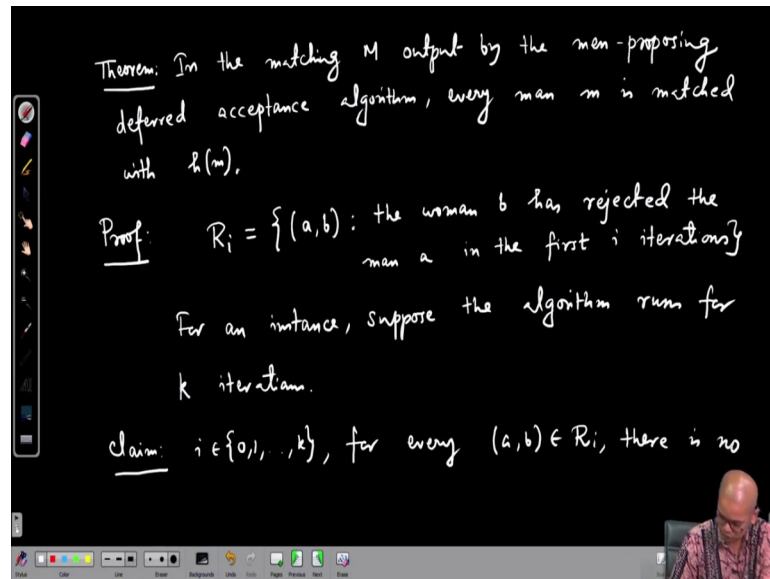 Theorem: In the matching M output by the men-proposing
deferred acceptance algorithm, every man m is matched
with h(m).
Proof: R_i = {(a,b) : the woman b has rejected the
man a in the first i iterations}
For an instance, suppose the algorithm runs for
k iterations.
Claim: i ∈ {0,1,..,k}, for every (a,b) ∈ R_i, there is no
Stylus Color Line Eraser Backgrounds Undo Redo Pages Previous Next Erase